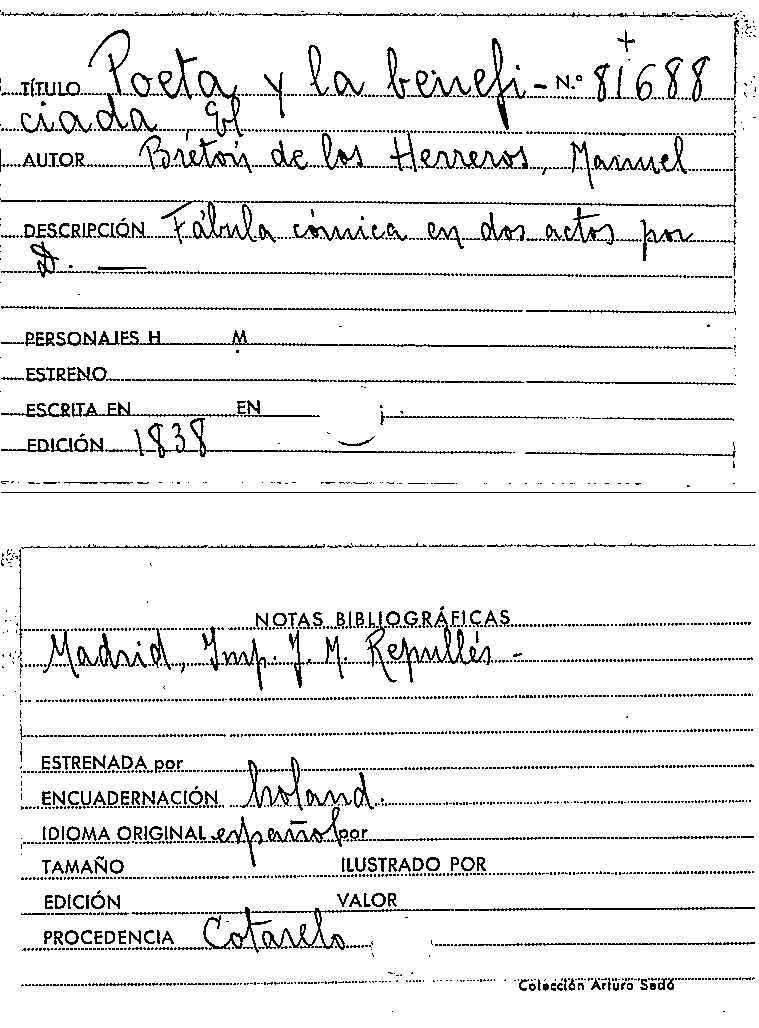 TÍTULO Poeta y la benefi- N.º 81688
ciada, El
AUTOR Bretón de los Herreros, Manuel
DESCRIPCIÓN Fábula cómica en dos actos por
D. —
PERSONAJES H M
ESTRENO
ESCRITA EN EN
EDICIÓN 1838
NOTAS BIBLIOGRÁFICAS
Madrid, Imp. J. M. Repullés -
ESTRENADA por
ENCUADERNACIÓN holand.
IDIOMA ORIGINAL español por
TAMAÑO ILUSTRADO POR
EDICIÓN VALOR
PROCEDENCIA Cotarelo
Colección Arturo Sedó